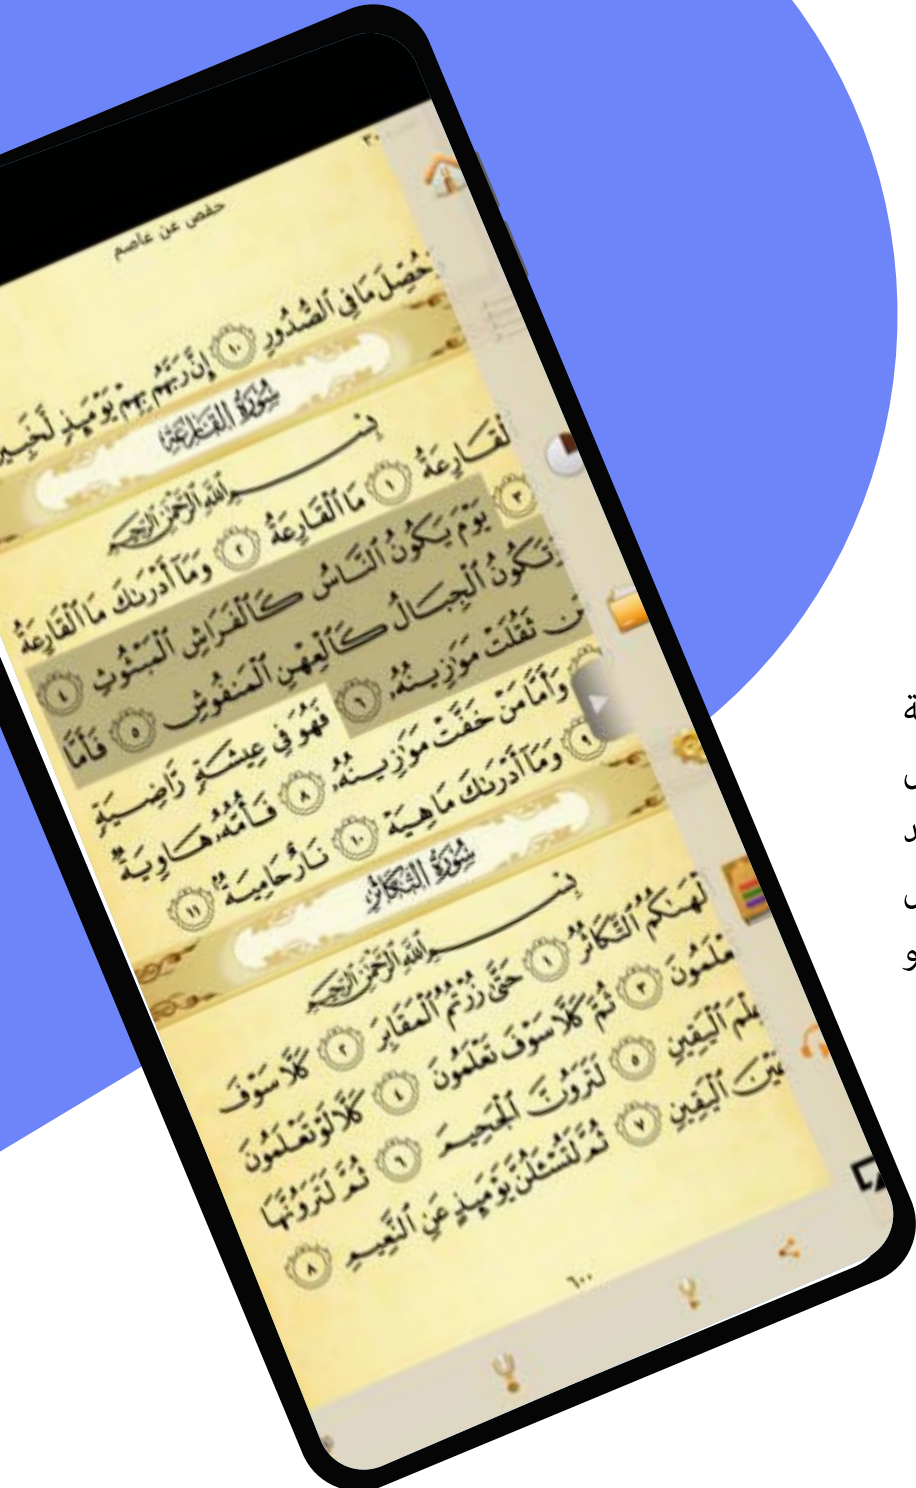 ٣٠
حفص عن عاصم
حُصِّلَ مَا فِى ٱلصُّدُورِ ١٠ إِنَّ رَبَّهُم بِهِمْ يَوْمَئِذٍ
سُورَةُ القَارِعَةِ
بِسْمِ ٱللَّهِ ٱلرَّحْمَٰنِ ٱلرَّحِيمِ
لْقَارِعَةُ ١ مَا ٱلْقَارِعَةُ ٢ وَمَآ أَدْرَىٰكَ مَا ٱلْقَارِعَةُ
٣ يَوْمَ يَكُونُ ٱلنَّاسُ كَٱلْفَرَاشِ ٱلْمَبْثُوثِ ٤
تَكُونُ ٱلْجِبَالُ كَٱلْعِهْنِ ٱلْمَنفُوشِ ٥ فَأَمَّا
ن ثَقُلَتْ مَوَٰزِينُهُۥ ٦ فَهُوَ فِى عِيشَةٍ رَّاضِيَةٍ
وَأَمَّا مَنْ خَفَّتْ مَوَٰزِينُهُۥ ٨ فَأُمُّهُۥ هَاوِيَةٌ
٩ وَمَآ أَدْرَىٰكَ مَا هِيَهْ ١٠ نَارٌ حَامِيَةٌۢ ١١
سُورَةُ التَّكَاثُرِ
بِسْمِ ٱللَّهِ ٱلرَّحْمَٰنِ ٱلرَّحِيمِ
لْهَىٰكُمُ ٱلتَّكَاثُرُ ١ حَتَّىٰ زُرْتُمُ ٱلْمَقَابِرَ ٢ كَلَّا سَوْفَ
عْلَمُونَ ٣ ثُمَّ كَلَّا سَوْفَ تَعْلَمُونَ ٤ كَلَّا لَوْ تَعْلَمُونَ
عِلْمَ ٱلْيَقِينِ ٥ لَتَرَوُنَّ ٱلْجَحِيمَ ٦ ثُمَّ لَتَرَوُنَّهَا
عَيْنَ ٱلْيَقِينِ ٧ ثُمَّ لَتُسْـَٔلُنَّ يَوْمَئِذٍ عَنِ ٱلنَّعِيمِ ٨
٦٠٠